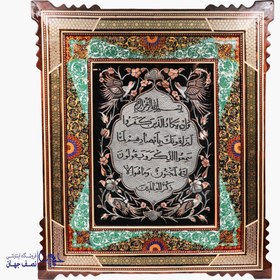 بسم الله الرحمن الرحیم
وان یکاد الذین کفروا
لیزلقونک بابصارهم لما
سمعوا الذکر و یقولون
انه لمجنون وما هو الا
ذکر للعالمین
فروشگاه اینترنتی
نصف جهان